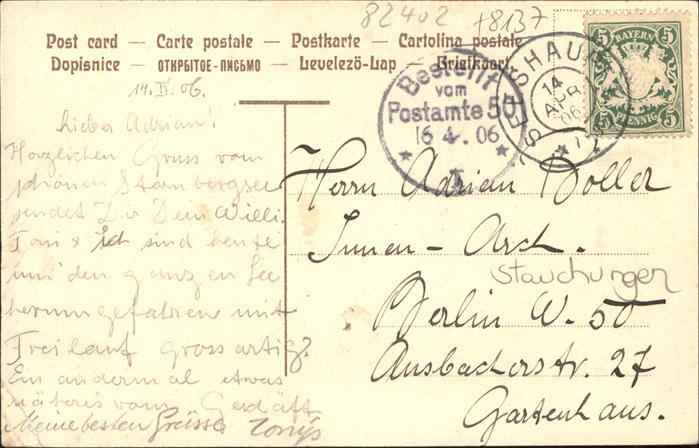 82402 +8137
Post card — Carte postale — Postkarte — Cartolina postale
Dopisnice — ОТКРЫТОЕ-ПИСЬМО — Levelező-Lap — Briefkaart
BAYERN
5 5
5 5
PFENNIG
SEESHAUPT
14
APR
06
Bestellt
vom
Postamte 50
16 4. 06
14. IV. 06.
Lieber Adrian!
Herzlichen Gruss vom
schönen Starnbergsee
sendet Dir Dein Willi.
Toni & ich sind heute
um den ganzen See
herumgefahren mit
Freilauf grossartig?
Ein andermal etwas
näheres vom
Meine besten Grüsse Tonys
Herrn Adrian Boller
Innen - Arch.
Stauchungen
Berlin W. 50
Ansbacherstr. 27
Gartenhaus.